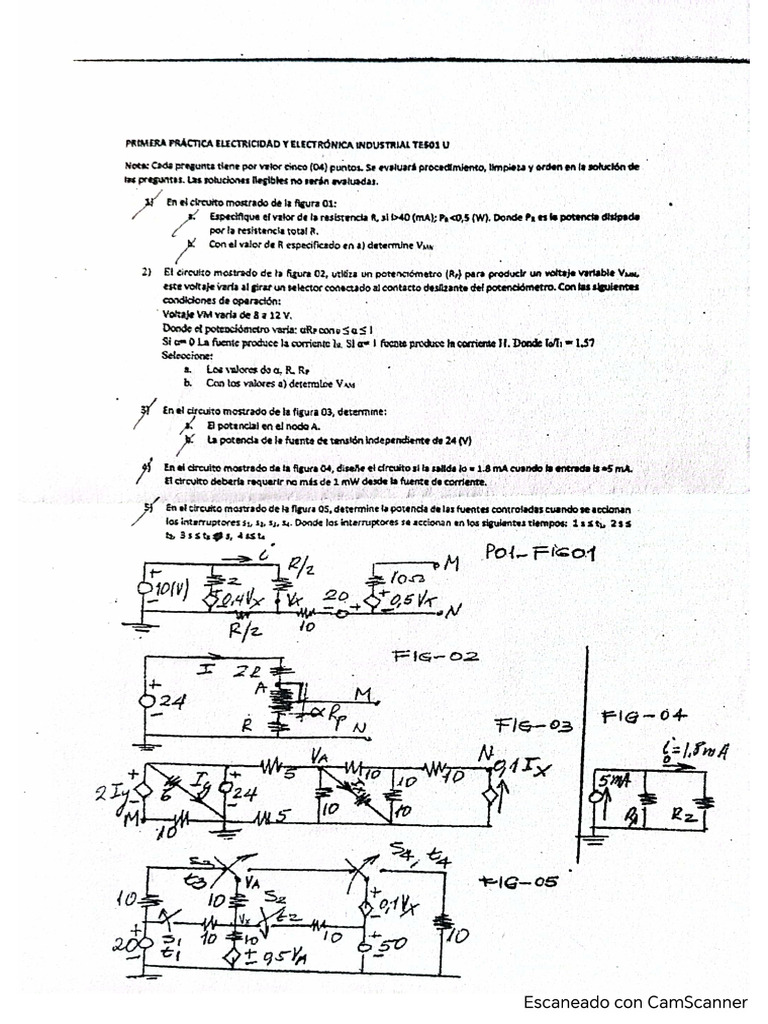 PRIMERA PRÁCTICA ELECTRICIDAD Y ELECTRÓNICA INDUSTRIAL TE501 U
Nota: Cada pregunta tiene por valor cinco (04) puntos. Se evaluará procedimiento, limpieza y orden en la solución de
las preguntas. Las soluciones ilegibles no serán evaluadas.
1) En el circuito mostrado de la figura 01:
a. Especifique el valor de la resistencia R, si I>40 (mA); PR<0,5 (W). Donde PR es la potencia disipada
por la resistencia total R.
b. Con el valor de R especificado en a) determine VMN
2) El circuito mostrado de la figura 02, utiliza un potenciómetro (RP) para producir un voltaje variable VMN,
este voltaje varía al girar un selector conectado al contacto deslizante del potenciómetro. Con las siguientes
condiciones de operación:
Voltaje VM varía de 8 a 12 V.
Donde el potenciómetro varía: αRP con 0 ≤ α ≤ 1
Si α= 0 La fuente produce la corriente I0. Si α= 1 fuente produce la corriente I1. Donde I0/I1 = 1.57
Seleccione:
a. Los valores de α, R, RP
b. Con los valores a) determine VAM
3) En el circuito mostrado de la figura 03, determine:
a. El potencial en el nodo A.
b. La potencia de la fuente de tensión independiente de 24 (V)
4) En el circuito mostrado de la figura 04, diseñe el circuito si la salida Io = 1.8 mA cuando la entrada is =5 mA.
El circuito debería requerir no más de 1 mW desde la fuente de corriente.
5) En el circuito mostrado de la figura 05, determine la potencia de las fuentes controladas cuando se accionan
los interruptores s1, s2, s3, s4. Donde los interruptores se accionan en los siguientes tiempos: 1 s ≤ t1, 2 s ≤
t2, 3 s ≤ t3 s, 4 s ≤ t4
i R/2 M P01-FIG01
+ 10(V) - 2 0,4Vx Vx 20 10Ω 0,5Vx N
R/2 10
I 2R FIG-02
A M
+ 24 - αRp
R N
FIG-03 FIG-04
VA N 0,1Ix i0=1,8mA
5 10 10 10
2Iy 6 Iy 24 10 Ix 10 5mA R1 R2
M 10 5
S3 t3 VA S4, t4 FIG-05
10 10 S2 t2 0,1Vx
Vx
20 S1 t1 10 10 0,5VA 10 50 10
Escaneado con CamScanner